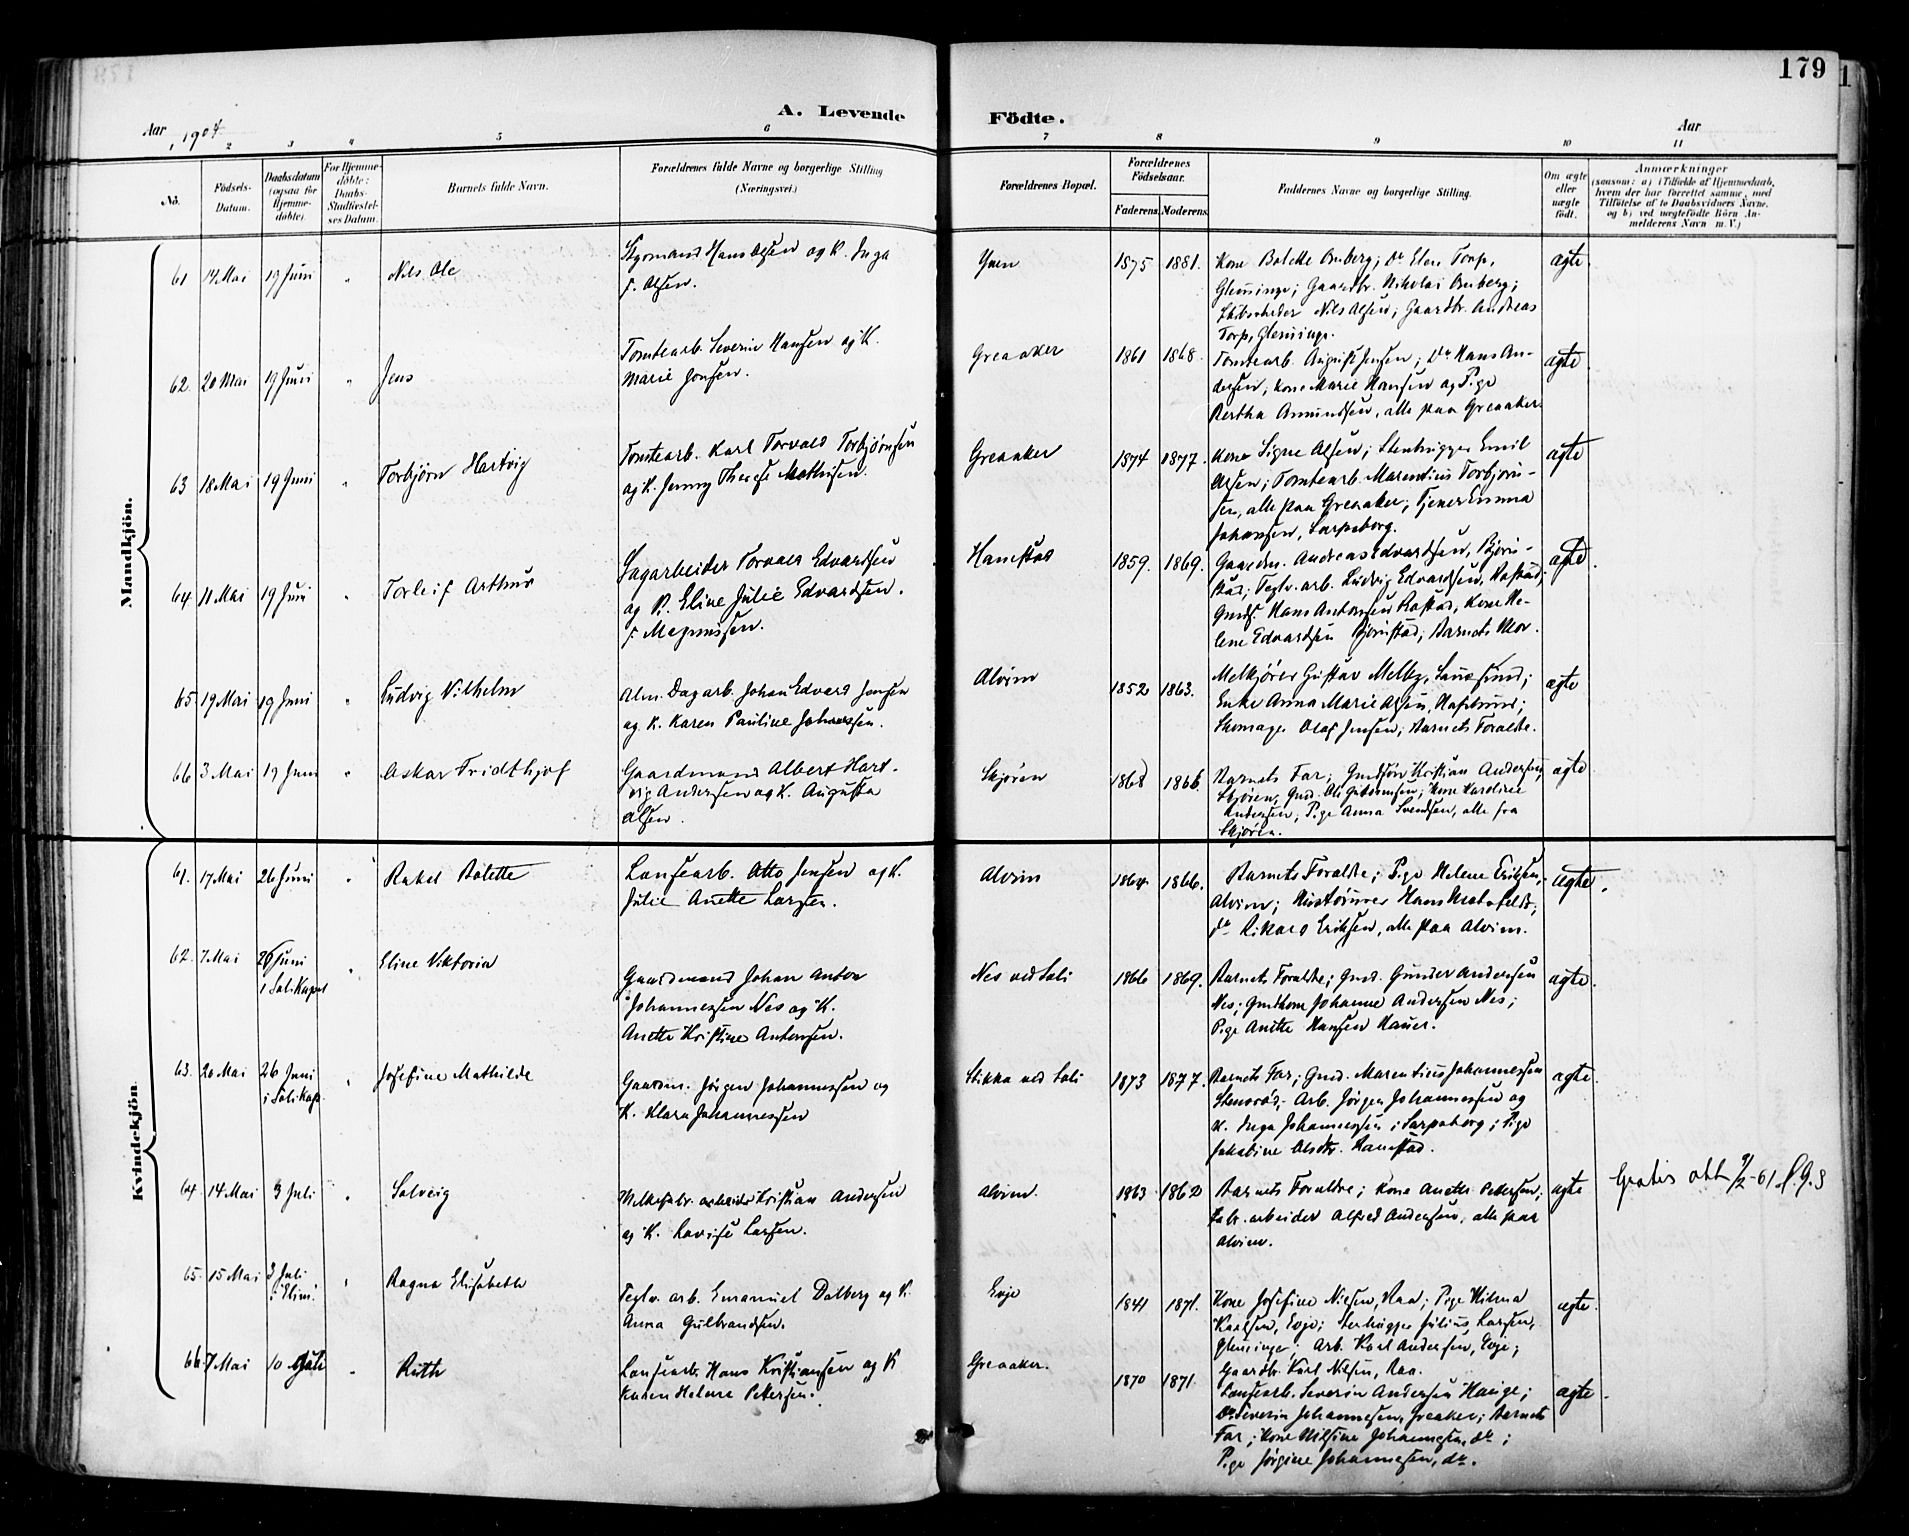 179
A. Levende Födte.
Aar 1904
Aar
2 3 4 5 6 7 8 9 10 11
No.
Födsels-Datum.
Daabsdatum (ogsaa for Hjemme-döbte).
For Hjemme-döbte: Daabs-Stadfæstel-ses Datum.
Barnets fulde Navn.
Forældrenes fulde Navne og borgerlige Stilling (Næringsvei.)
Forældrenes Bopæl.
Forældrenes Födselsaar.
Faderens. Moderens.
Faddernes Navne og borgerlige Stilling.
Om ægte eller uægte födt.
Anmærkninger
(saasom: a) i Tilfælde af Hjemmedaab, hvem der har forrettet samme, med Tilföielse af to Daabsvidners Navne, og b) ved uægtefödte Börn An-melderens Navn m. V.)
Mandkjön.
61 14 Mai 19 Juni " Nils Ole
Styrmand Hans Olsen og K. Inga
f. Olsen.
Yven 1875 1881.
Kone Bolette Omberg; Do Elene Torp,
Glemminge; Gaardbr. Nikolai Omberg;
Skibsreder Nils Olsen; Gaardbr. Andreas
Torp, Glemminge.
ægte.
62 20 Mai 19 Juni " Jens
Tomtearb. Severin Hansen og K.
Marie Jonsen.
Greaaker 1861 1868.
Tomtearb. August Jensen; Do Hans An-
dersen; Kone Marie Hansen og Pige
Bertha Amundsen, alle paa Greaaker.
ægte.
63 18 Mai 19 Juni " Torbjörn Hartvig
Tomtearb. Karl Torvald Torbjörnsen
og K. Jenny Therese Mathisen.
Greaaker 1874 1877.
Kone Signe Olsen; Stenhugger Emil
Olsen; Tomtearb. Marentius Torbjörn-
sen, alle paa Greaaker; Tjener Emma
Johansen, Sarpsborg.
ægte
64 11 Mai 19 Juni " Torleif Arthur
Sagarbeider Torvald Edvardsen
og K. Eline Julie Edvardsen.
f. Magnussen.
Hanestad 1859. 1869.
Gaardm. Andreas Edvardsen, Björn-
stad; Teglv. arb. Ludvig Edvardsen, Rostad;
Gmds. Hans Antonsen Rostad, Kone He-
lene Edvardsen Björnstad; Barnets Mor.
ægte.
65. 19 Mai 19 Juni " Ludvig Vilhelm
Alm. Dagarb. Johan Edvard Jensen
og K. Karen Pauline Johannessen.
Alvim 1852 1863.
Melkjörer Gustav Melby, Sannesund;
Enke Anna Marie Olsen, Hafslund;
Skomager Olaf Jensen; Barnets Forældre.
ægte
66 3 Mai 19 Juni " Oskar Fridthjof
Gaardmand Albert Hart-
vig Andersen og K. Augusta
Olsen.
Skjören 1868 1866.
Barnets Far; Gmdsön Kristian Andersen
Skjören; Gmd. Ole Gulbransen; Kone Karoline
Andersen; Pige Anna Svendsen, alle fra
Skjören.
ægte
Kvindekjön.
61. 17 Mai 26 Juni " Rakel Bolette
Lansearb. Otto Jensen og K.
Julie Anette Larsen.
Alvim 1864 1866.
Barnets Forældre; Pige Helene Eriksen,
Alvim;
Rikard Eriksen, alle paa Alvim.
ægte.
62. 7 Mai 26 Juni i Soli Kapel " Eline Viktoria
Gaardmand Johan Anton
Johannessen Nes og K.
Anette Kristine Antonsen.
Nes ved Soli 1866 1869.
Barnets Forældre; Gmd. Gunder Andersen
Nes; Gmdkone Johanne Andersen Nes;
Pige Anette Hansen Hauer.
ægte.
63. 20 Mai 26 Juni i Soli Kap. " Josefine Mathilde
Gaardm. Jörgen Johannessen og
K. Klara Johannessen
Stikka ved Soli 1873 1877.
Barnets Far; Gmd. Marentius Johannessen
Stensröd; Arb. Jörgen Johannessen og
K. Inga Johannessen i Sarpsborg; Pige
Jakobine Olsdtr. Ramstad.
ægte.
64. 14 Mai 3 Juli " Solveig
Melkefabr. arbeider Kristian Andersen
og K. Lovise Larsen.
Alvim. 1863 1862
Barnets Forældre; Kone Anette Pettersen;
Fabr. arbeider Alfred Andersen, alle paa
Alvim.
ægte
Gratis att 9/2-61
65. 15 Mai 3 Juli i Elim. " Ragna Elisabeth
Teglv. arb. Emanuel Dalberg og K.
Anna Gulbrandsen.
Evje 1841 1871.
Kone Josefine Nielsen, Raa; Pige Hilma
Karlsen, Evje; Stenhugger Julius Larsen,
Glemminge; Arb. Karl Andersen, Evje;
Gaardbr. Karl Nilsen, Raa.
ægte.
66. 7 Mai 10 Juli " Ruth
Lansearb. Hans Kristiansen og K
Karen Helene Petersen.
Greaaker. 1870 1871.
Lansearb. Severin Andersen Hauge;
Do Severin Johannesen, Greaker; Barnets
Far; Kone Nilsine Johannesen, do;
Pige Jörgine Johannesen, do.
ægte.